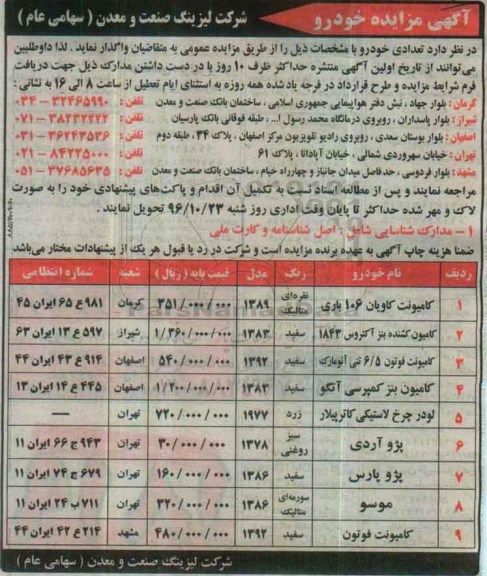 آگهی مزایده خودرو
شرکت لیزینگ صنعت و معدن ( سهامی عام )
در نظر دارد تعدادی خودرو با مشخصات ذیل را از طریق مزایده عمومی به متقاضیان واگذار نماید . لذا داوطلبین
می‌توانند از تاریخ اولین آگهی منتشره حداکثر ظرف ۱۰ روز با در دست داشتن مدارک ذیل جهت دریافت
فرم شرایط مزایده و طرح قرارداد در فرجه یاد شده همه روزه به استثنای ایام تعطیل از ساعت ۸ الی ۱۶ به نشانی :
کرمان: بلوار جهاد ، نبش دفتر هواپیمایی جمهوری اسلامی ، ساختمان بانک صنعت و معدن تلفن : ۳۲۴۶۵۹۹۰ – ۰۳۴
شیراز : بلوار پاسداران ، روبروی درمانگاه محمد رسول ا... ، طبقه فوقانی بانک پارسیان تلفن : ۳۸۲۳۲۲۲۲ – ۰۷۱
اصفهان : بلوار بوستان سعدی ، روبروی رادیو تلویزیون مرکز اصفهان ، پلاک ۳۴ ، طبقه دوم تلفن : ۳۶۲۴۳۵۳۶ – ۰۳۱
تهران : خیابان سهروردی شمالی ، خیابان آپادانا ، پلاک ۶۱ تلفن : ۸۴۲۲۵۰۰۰ – ۰۲۱
مشهد : بلوار فردوسی ، حد فاصل میدان جانباز و چهارراه خیام ، ساختمان بانک صنعت و معدن تلفن : ۳۷۶۸۵۶۳۵ – ۰۵۱
مراجعه نمایند و پس از مطالعه اسناد نسبت به تکمیل آن اقدام و پاکت‌های پیشنهادی خود را به صورت
لاک و مهر شده حداکثر تا پایان وقت اداری روز شنبه ۹۶/۱۰/۲۳ تحویل نمایند .
۱ – مدارک شناسایی شامل : اصل شناسنامه و کارت ملی
ضمنا هزینه چاپ آگهی به عهده برنده مزایده است و شرکت در رد یا قبول هر یک از پیشنهادات مختار می‌باشد
ردیف نام خودرو رنگ مدل قیمت پایه ( ریال ) شعبه شماره انتظامی
۱ کامیونت کاویان ۱۰۶ باری نقره‌ای متالیک ۱۳۸۹ ۳۵۱/۰۰۰/۰۰۰ کرمان ۹۸۱ ع ۶۵ ایران ۴۵
۲ کامیون کشنده بنز آکتروس ۱۸۴۳ سفید ۱۳۸۳ ۱/۳۶۰/۰۰۰/۰۰۰ شیراز ۵۹۷ ع ۱۳ ایران ۶۳
۳ کامیونت فوتون ۶/۵ تنی آئومارک سفید ۱۳۹۲ ۵۴۰/۰۰۰/۰۰۰ اصفهان ۹۱۴ ع ۴۳ ایران ۴۴
۴ کامیون بنز کمپرسی آتگو سفید ۱۳۸۳ ۱/۲۰۰/۰۰۰/۰۰۰ اصفهان ۴۴۵ ع ۱۴ ایران ۱۳
۵ لودر چرخ لاستیکی کاترپیلار زرد ۱۹۷۷ ۷۲۰/۰۰۰/۰۰۰ تهران —
۶ پژو آردی سبز روغنی ۱۳۷۸ ۳۰/۰۰۰/۰۰۰ تهران ۹۴۳ ج ۶۶ ایران ۱۱
۷ پژو پارس سفید ۱۳۸۶ ۱۶۰/۰۰۰/۰۰۰ تهران ۶۷۹ ج ۷۴ ایران ۱۱
۸ موسو سورمه‌ای متالیک ۱۳۸۶ ۳۲۰/۰۰۰/۰۰۰ تهران ۷۱۱ ب ۲۴ ایران ۱۱
۹ کامیونت فوتون سفید ۱۳۹۲ ۴۸۰/۰۰۰/۰۰۰ مشهد ۲۱۴ ع ۴۲ ایران ۴۴
شرکت لیزینگ صنعت و معدن ( سهامی عام )